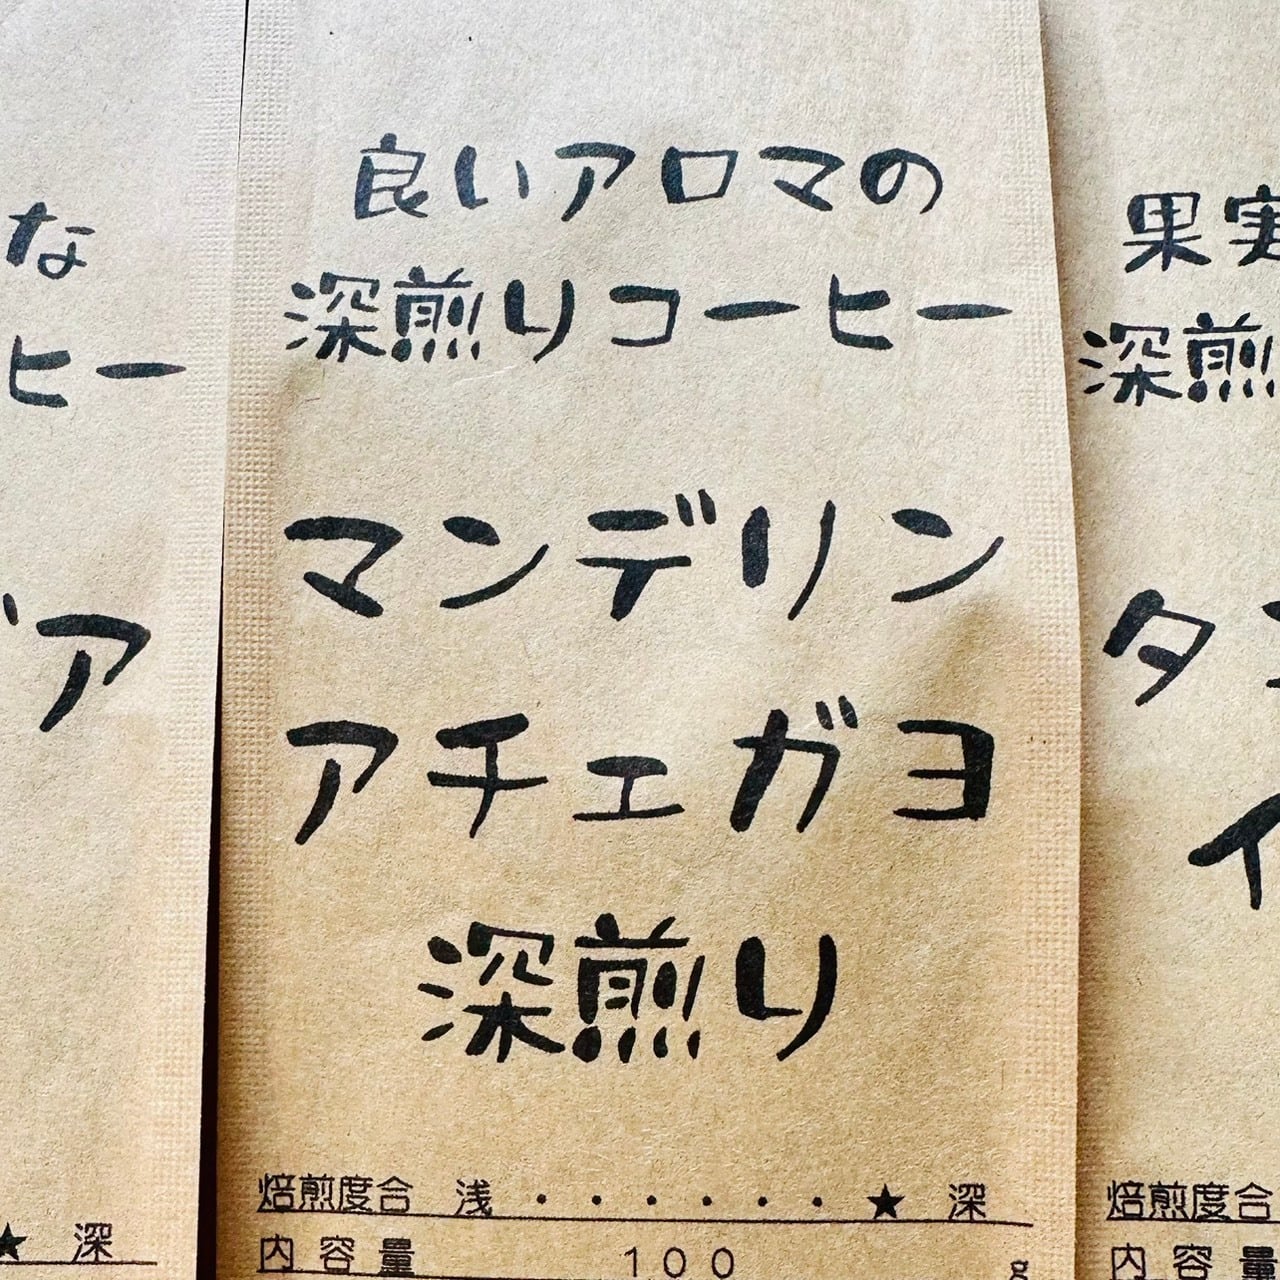 な
ヒー
ア
★ 深
良いアロマの
深煎りコーヒー
マンデリン
アチェガヨ
深煎り
焙煎度合 浅 ・・・・・・・★ 深
内容量 100 g
果実
深煎
タン
イ
焙煎度合
内容量